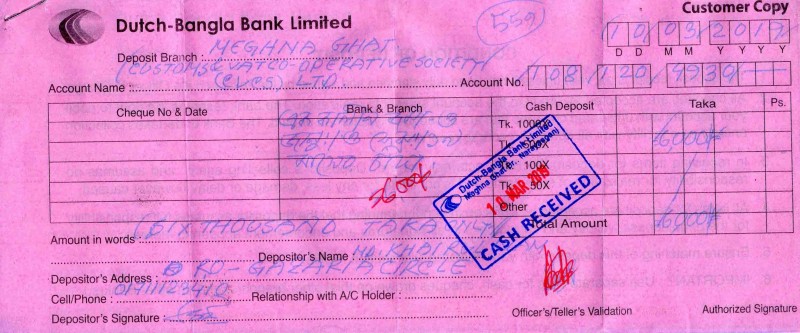 Customer Copy
Dutch-Bangla Bank Limited
559
10 03 201
D D M M Y Y Y Y
Deposit Branch : MEGHNA GHAT
(CUSTOMS & VAT CO-OPERATIVE SOCIETY
Account Name : (CVCS) LTD
Account No. 108 120
Cheque No & Date Bank & Branch Cash Deposit Taka Ps.
Tk. 1000X
Tk. 500X 6000/-
Tk. 100X
6000/-
Tk. 50X
Other
Total Amount 6000/-
Dutch-Bangla Bank Limited
Meghna Ghat Br. Narayanganj
18 MAR 2019
CASH RECEIVED
Amount in words : (SIX THOUSAND TAKA ONLY)
Depositor's Name : MD KHAIRUL
Depositor's Address : RO - GAZARIA CIRCLE
Cell/Phone :
Relationship with A/C Holder :
Depositor's Signature :
Officer's/Teller's Validation
Authorized Signature